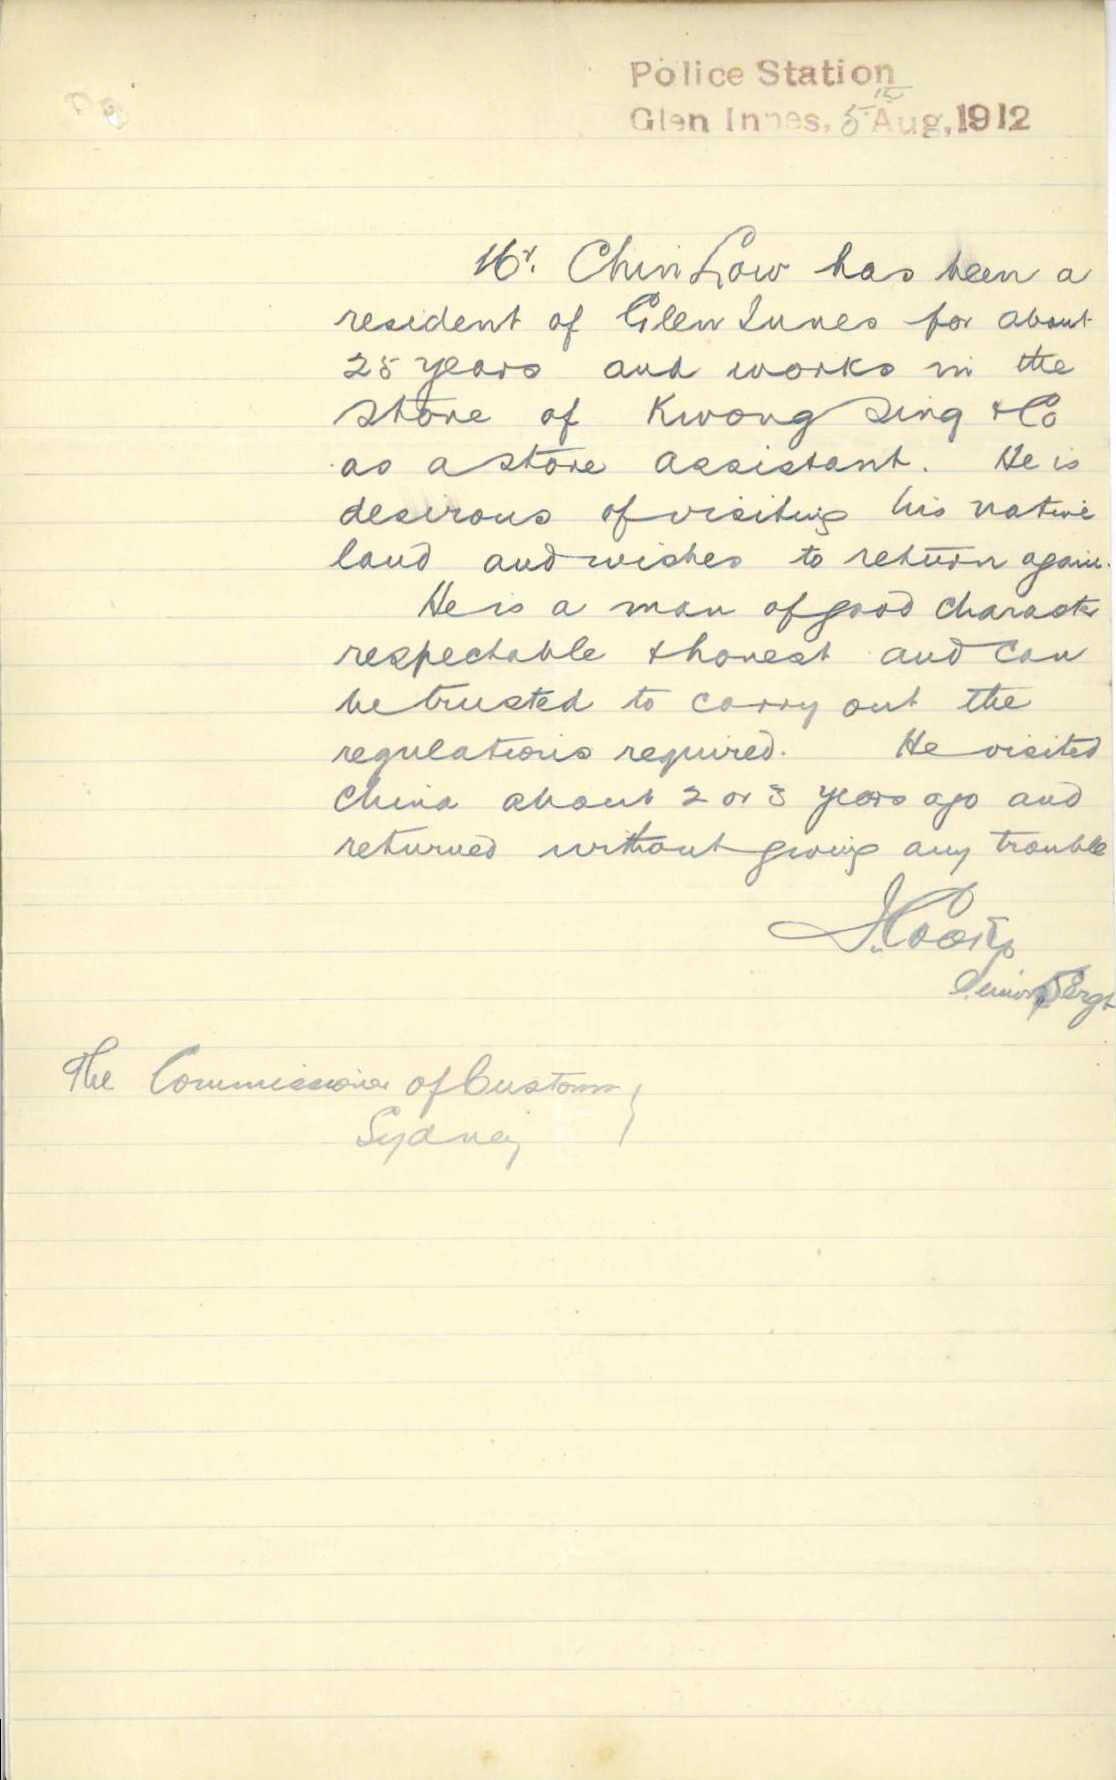 Police Station
Glen Innes, 5th Aug, 1912
Mr. Chin Low has been a
resident of Glen Innes for about
25 years and works in the
store of Kwong Sing & Co
as a store assistant. He is
desirous of visiting his native
land and wishes to return again.
He is a man of good character
respectable & honest and can
be trusted to carry out the
regulations required. He visited
China about 2 or 3 years ago and
returned without giving any trouble
Senior Sergt
The Commissioner of Customs
Sydney